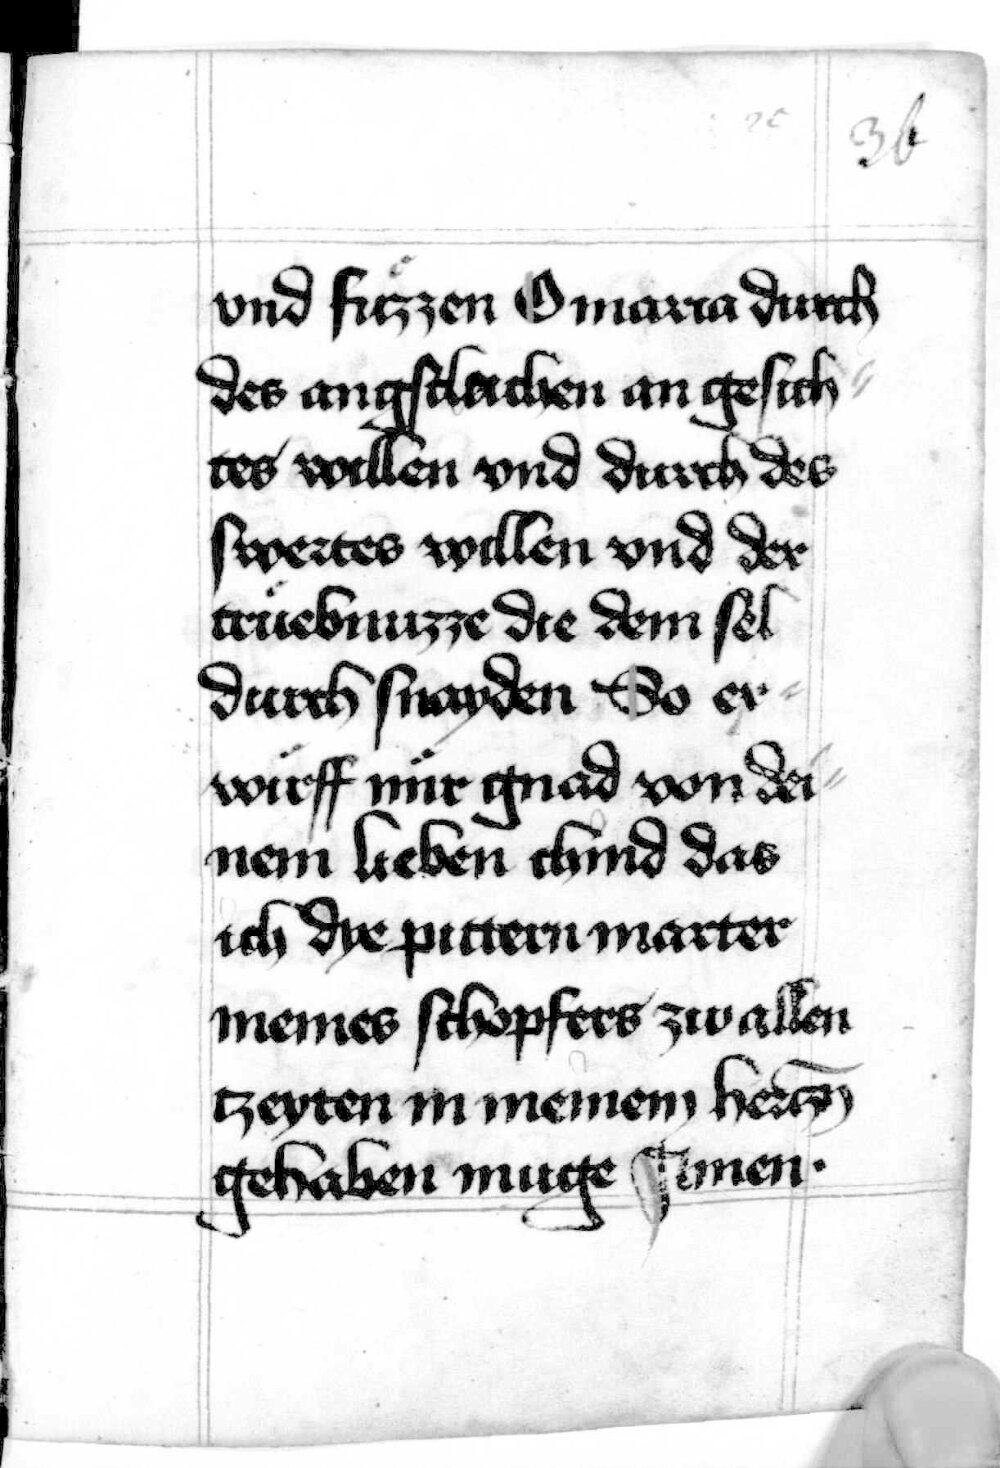 36
vnd fuͤzzen O maria durch
des angstleichen an gesich
tes willen vnd durch des
swertes willen vnd der
truͤebnuzze die dem sel
durch snayden So er-
wuͤrff mir gnad von dei-
nem lieben chind das
ich dye pittern marter
meines schopfers zw allen
tzeyten in meinem hertzn̄
gehaben muge Amen.